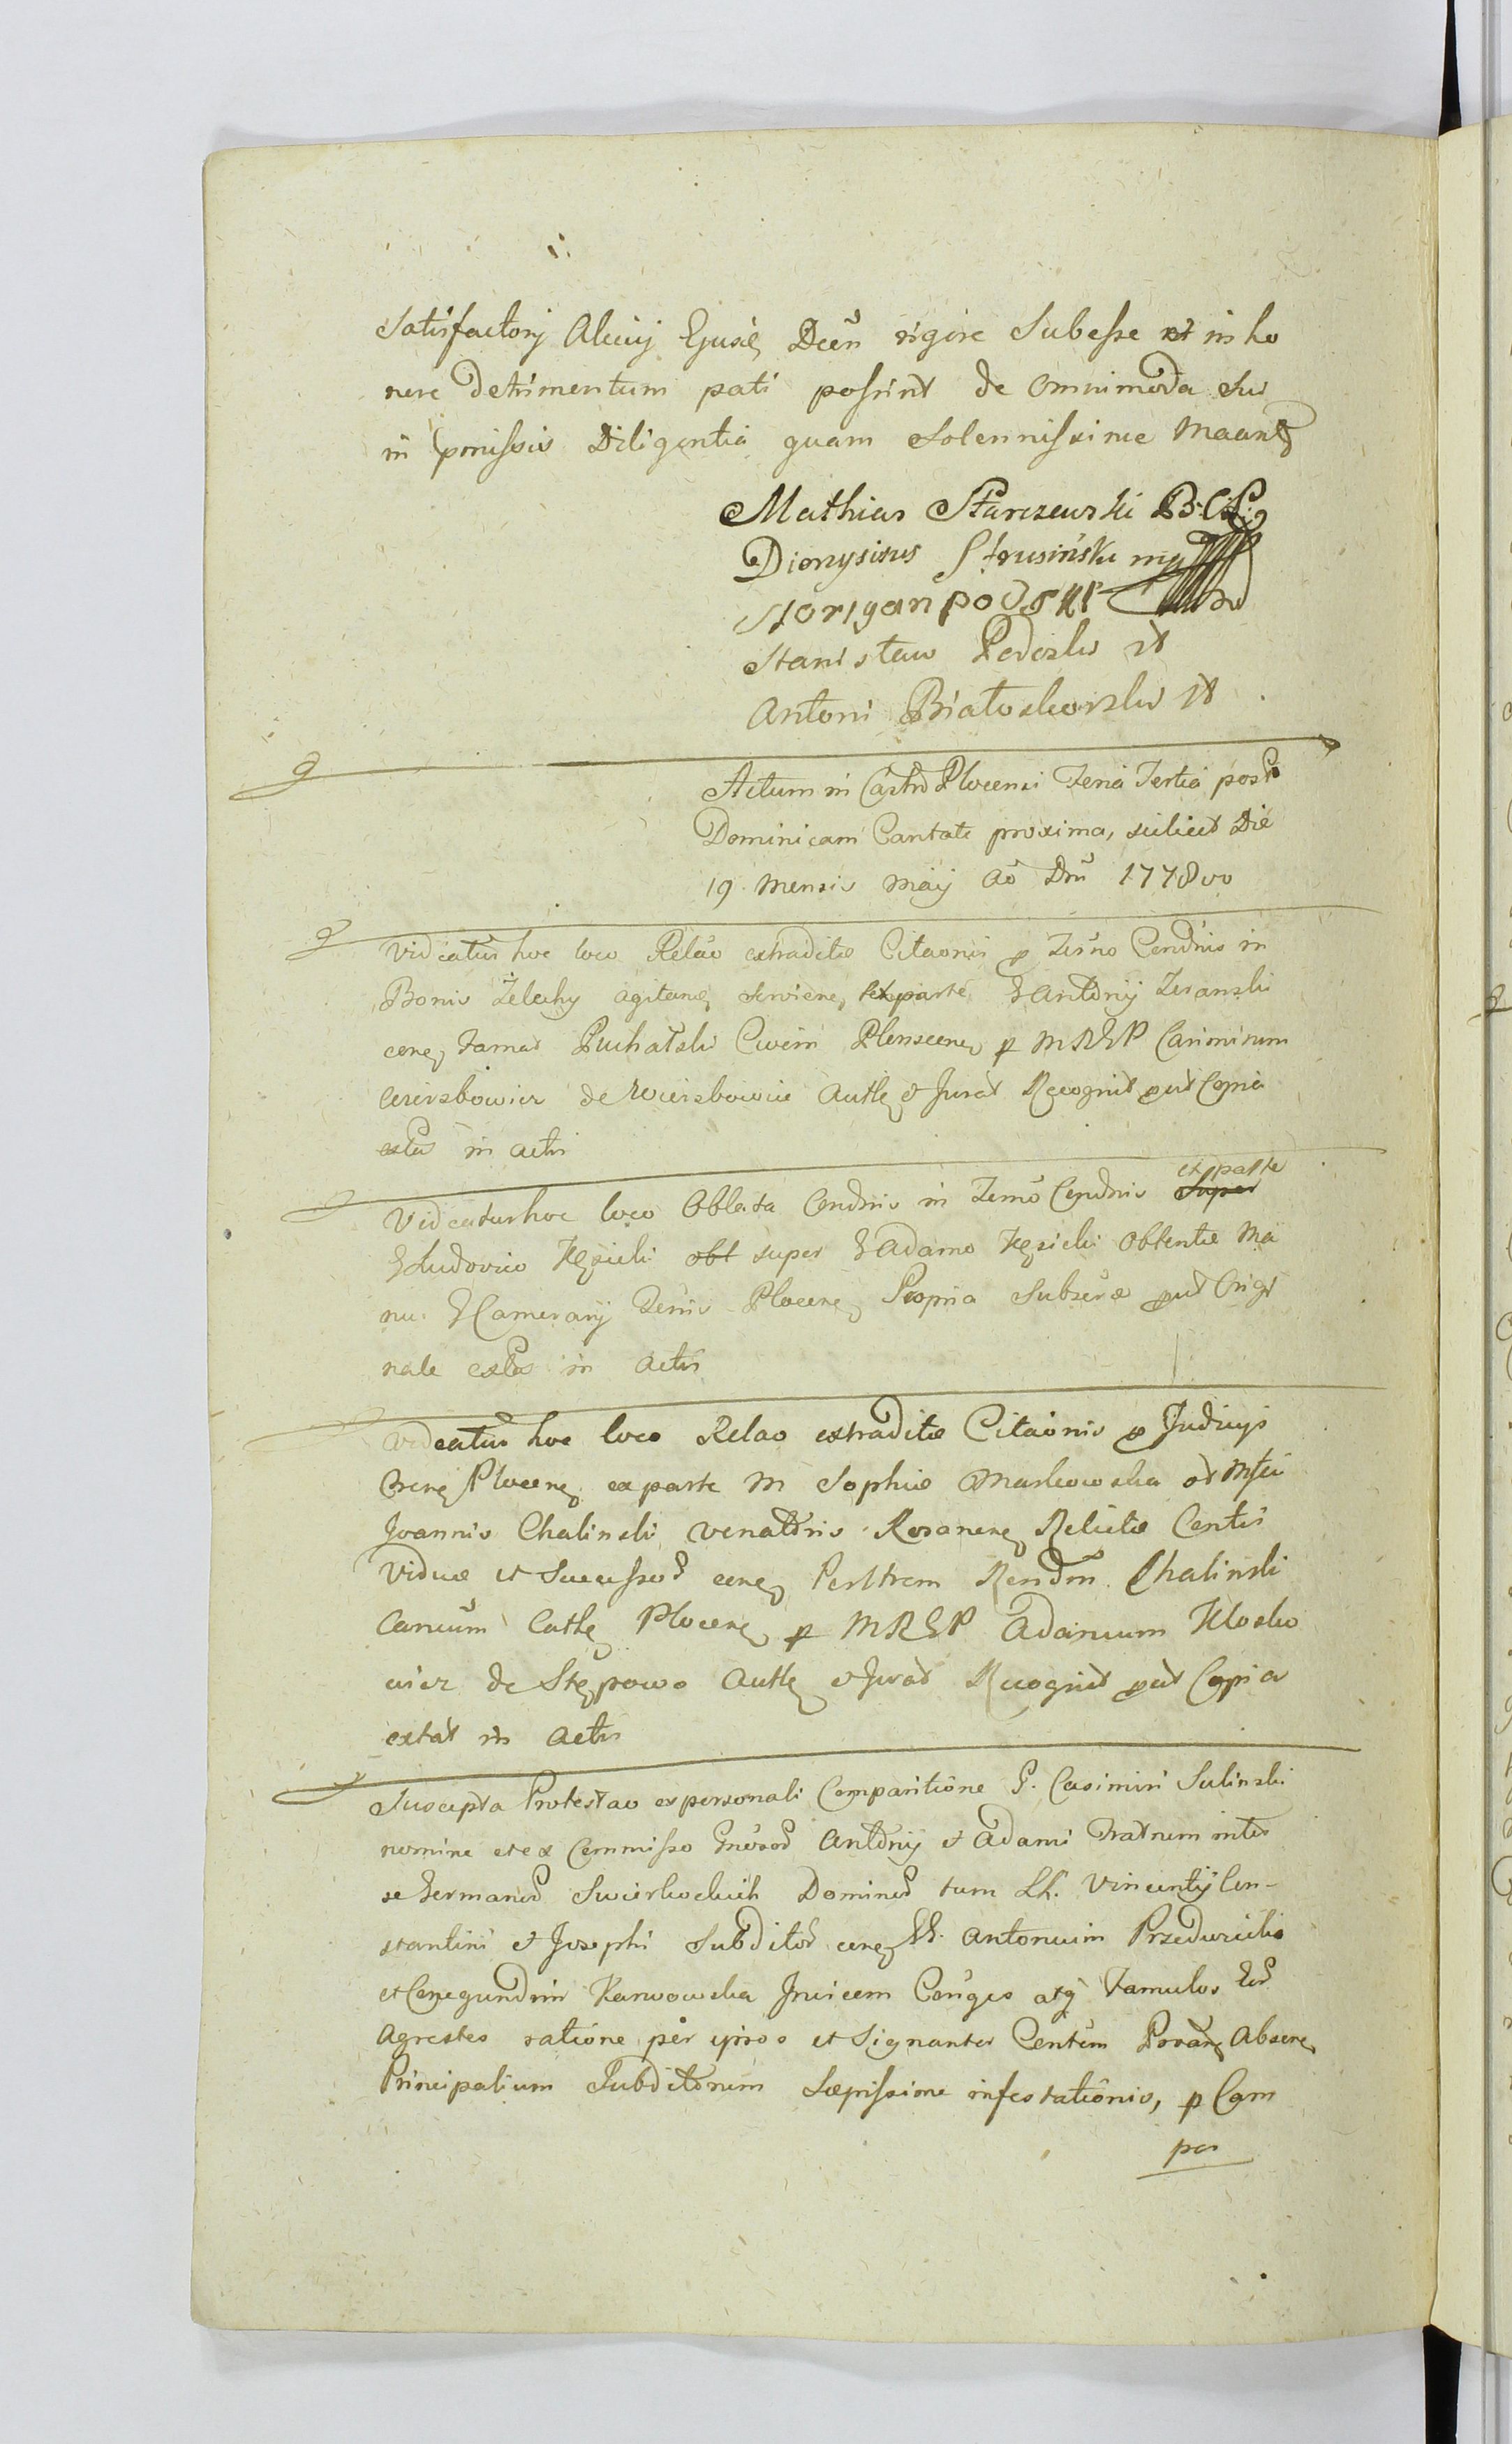 Satisfactorij Alicuj Ejusd Decti rigore Subesse et in ho
nore detrimentum pati possint de Omnimoda Su
in pmissis Diligentia quam Solennissime Maante
Mathias Starczewski B:C:P:
Dionysius Strusiński mp
Florjgan podoski
Stanisław Podoski
Antoni Białoskorski
Actum in Castro Plocensi Feria Tertia post
Dominicam Cantate proxima, scilicet Die
19 Mensis Maij Ao Dni 1778vo
Videatur hoc loco Relao extraditæ Citaonis p Termo Condnis in
Bonis Żelechy agitane Serviene ex parte G Antonij Zeranski
cone Famat Puchalski Civem Plonscene p MRGP Casimirum
Wierzbowicz de Wierzbowice Authe et Jurat Recognit put Copia
exta in actis
Videatur hoc loco Oblata Condnis in Termo Condnis Super ex parte
G Ludovico Kęsicki obt super G Adamo Kęsicki Obtentæ Ma
nu G Camerarij Terris Plocene Propria Subscræ put Origi
nale exta in actis
Videatur hoc loco Relao extraditæ Citaonis p Judicijs
Plocene ex parte M Sophiæ Markowska et
Joannis Chalinski Venatoris Rozanene Relictæ Contis
Viduæ et Successor cone Perltrem Rendm Chalinski
Canicum Cathe Plocene p MRGP Adamum Klosko
wicz de Stępowo Authe et Jurat Recognit put Copia
extat in actis
Suscepta Protestao ex personali Comparitione G. Casimiri Sulinski
nomine et ex Commisso Gnosor Antonij et Adami Fratrum inter
se Germanor Swierkockich Dominor tum LL. Vincentij Con-
stantini et Josephi Subditor cone LL. Antonium Przedwiecki
et Cunegundim Karwowska Invicem Conges atq Famulos Eor
Agrestes ratione per ipsos et Signanter Contem Absene
Principalium Subditorum Sæpissime infestationis, p Cam
pos